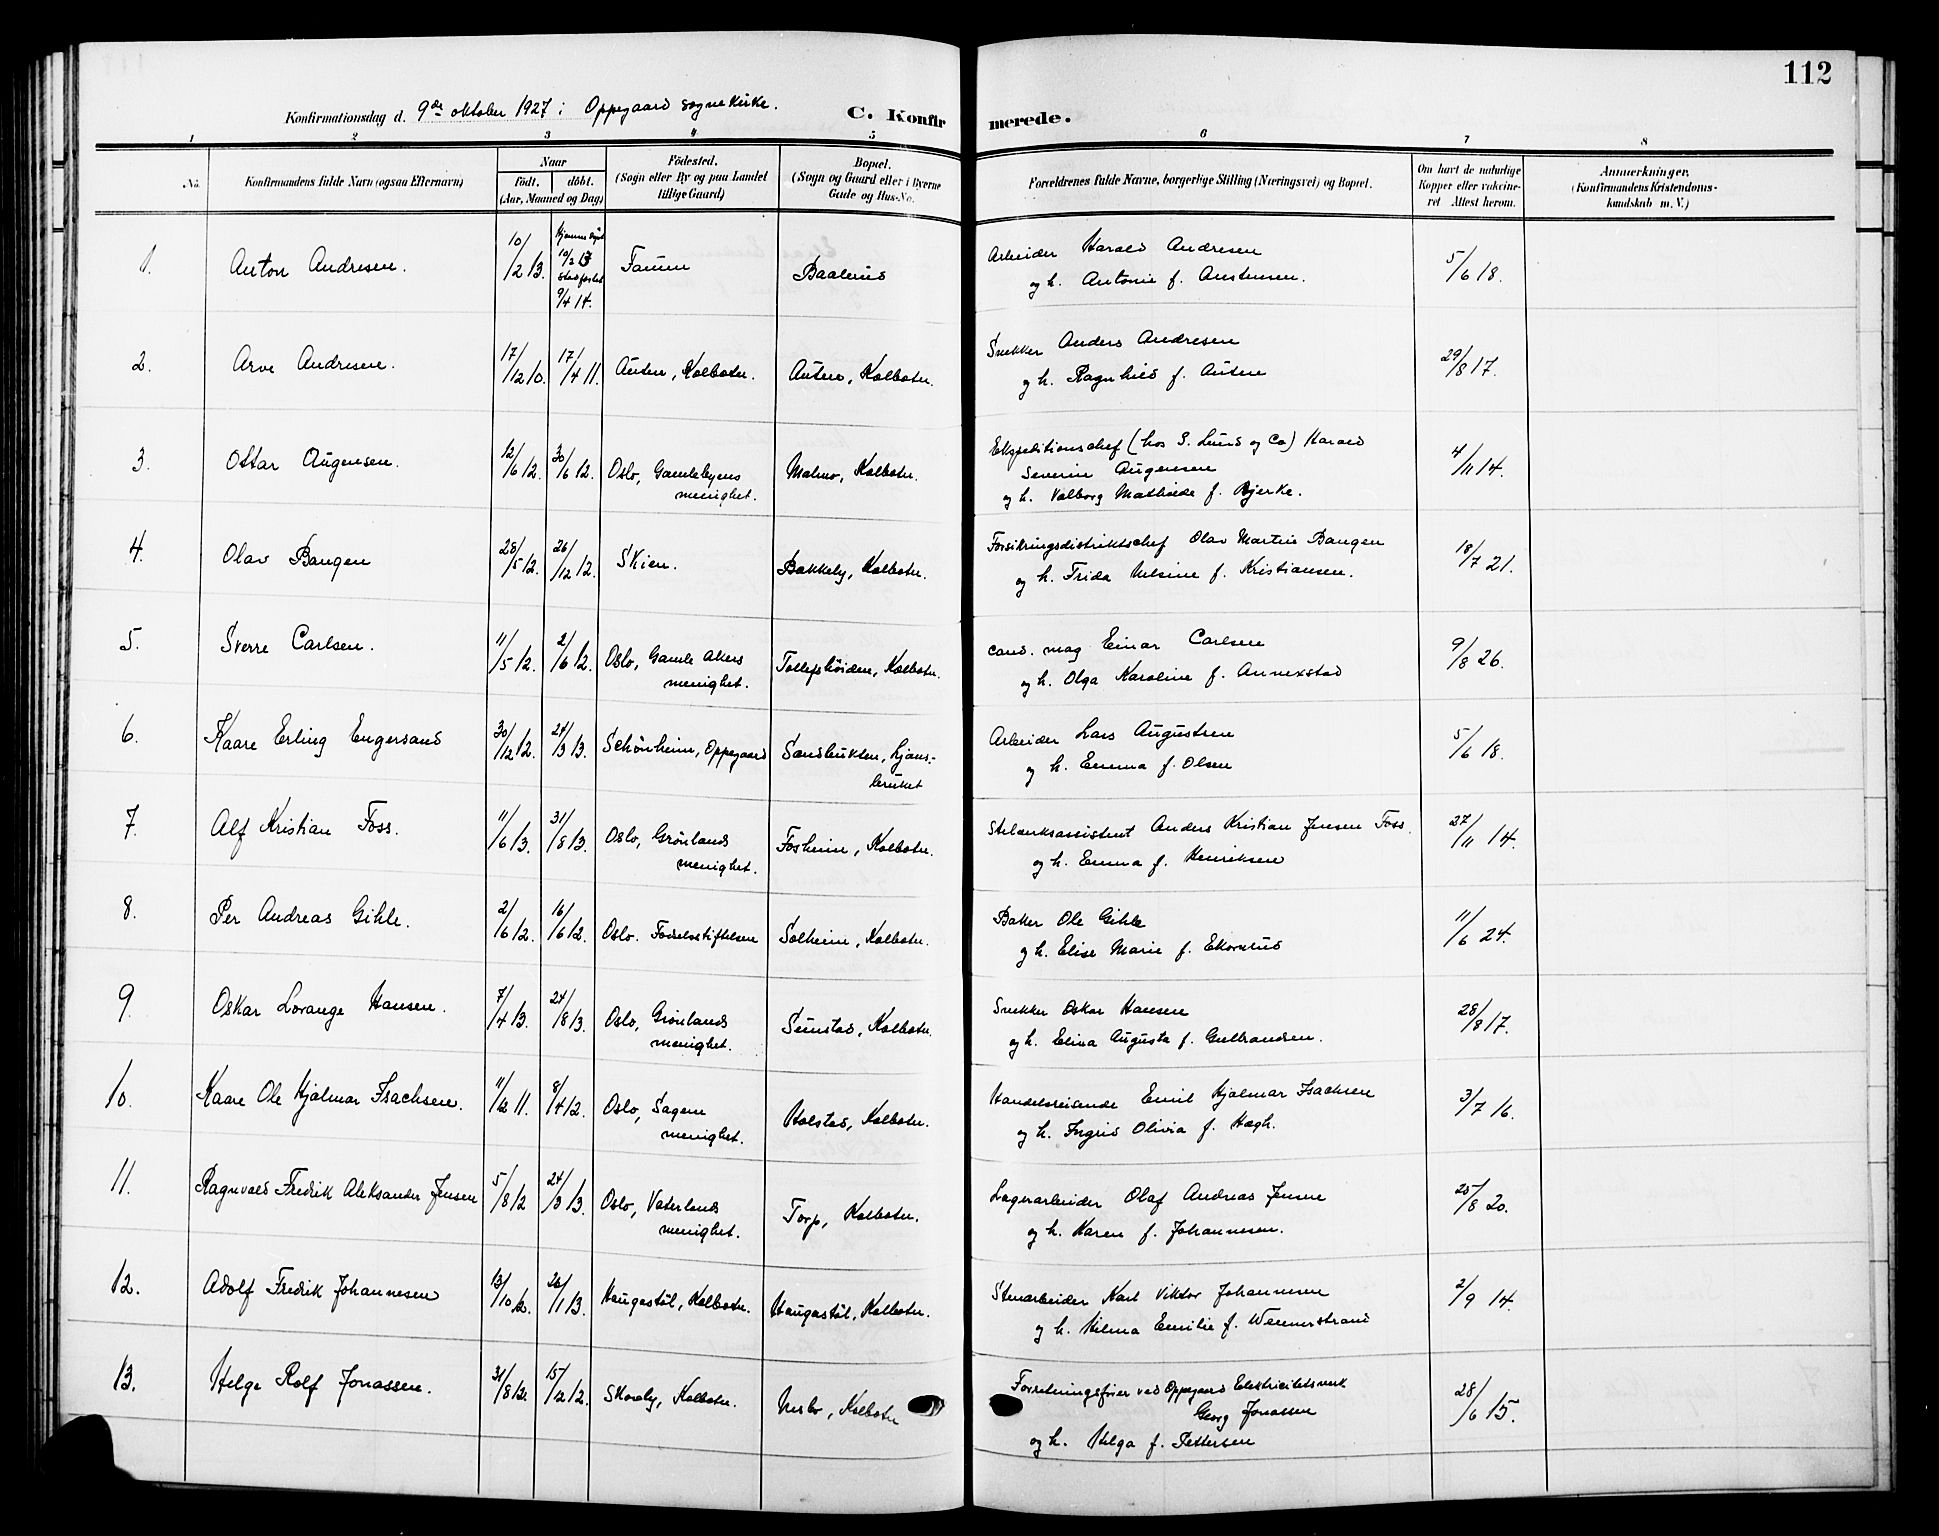 112
Konfirmationsdag d. 9de oktober 1927 i Oppegaard sognekirke.
C. Konfirmerede.
1 2 3 4 5 6 7 8
No. Konfirmandens fulde Navn (ogsaa Efternavn) Naar Födt. döbt. (Aar, Maaned og Dag) Födested. (Sogn eller By og paa Landet tillige Gaard) Bopæl. (Sogn og Gaard eller i Byerne Gade og Hus-No. Forældrenes fulde Navne, borgerlige Stilling (Næringsvei) og Bopæl. Om havt de naturlige Kopper eller vakcineret Attest herom. Anmærkninger. (Konfirmandens Kristendomskundskab m. V.)
1. Anton Andresen. 10/12 13. Hjemmedøpt 10/2 13 stadfestet 9/4 14. Baalerud Arbeider Harald Andresen 5/6 18.
og h. Antonie f. Anstensen.
2. Arve Andresen. 17/12 10. 17/4 11. Auten, Kolbotn. Auten, Kolbotn. Snekker Anders Andresen 29/8 17.
og h. Ragnhild f. Auten
3. Ottar Augensen. 12/6 12. 30/6 12. Oslo, Gamlebyens Malmo, Kolbotn. Ekspeditionschef (hos S. Lund og Co) Harald 4/11 14.
menighet. Severin Augensen
og h. Valborg Mathilde f. Bjerke.
4. Olav Bangen 28/5 12. 26/12 12. Skien. Bakkely, Kolbotn. Forsikringsdistriktschef Olav Martin Bangen 18/7 21.
og h. Frida Nelsine f. Kristiansen.
5. Sverre Carlsen. 11/5 12. 2/6 12. Oslo, Gamle Akers Tollefshöiden, Kolbotn. cand. mag Einar Carlsen 9/8 26.
menighet. og h. Olga Karoline f. Annexstad
6. Kaare Erling Engersand 30/12 12. 24/3 13. Schönheim, Oppegaard Sandbukten, Ljans- Arbeider Lars Augustsen 5/6 18.
bruket og h. Emma f. Olsen
7. Alf Kristian Foss. 11/6 13. 31/8 13. Oslo, Grönlands Fosheim, Kolbotn. Anders Kristian Jensen Foss. 27/11 14.
menighet. og h. Emma f. Henriksen
8. Per Andreas Gihle. 2/6 12. 16/6 12. Oslo. Fødselsstiftelsen Solheim, Kolbotn. Baker Ole Gihle 11/6 24.
og h. Elise Marie f. Ekornrud
9. Oskar Lorange Hansen. 7/4 13. 24/8 13. Oslo, Grönlands Sunstad, Kolbotn. Snekker Oskar Hansen 28/8 17.
menighet. og h. Elina Augusta f. Gulbrandsen.
10. Kaare Ole Hjalmar Isachsen. 11/12 11. 8/4 12. Oslo, Sagene Holstad, Kolbotn. Handelsreisende Emil Hjalmar Isachsen 3/7 16.
menighet. og h. Ingrid Olivia f. Hagh.
11. Ragnvald Fredrik Aleksander Jensen 5/8 12 24/3 13. Oslo, Vaterlands Torp, Kolbotn. Lagerarbeider Olaf Andreas Jensen 25/8 20.
menighet. og h. Karen f. Johannesen.
12. Adolf Fredrik Johannesen 13/10 12. 26/1 13. Haugastöl, Kolbotn. Haugastöl, Kolbotn. Stenarbeider Karl Viktor Johannesen 2/9 14.
og h. Hilma Emilie f. Wennerstrand
13. Helge Rolf Jonassen. 31/8 12. 15/12 12. Skovly, Kolbotn. Kolbotn Forretningsfører ved Oppegaard Elektricitetsverk 28/6 15.
Georg Jonassen
og h. Helga f. Pettersen